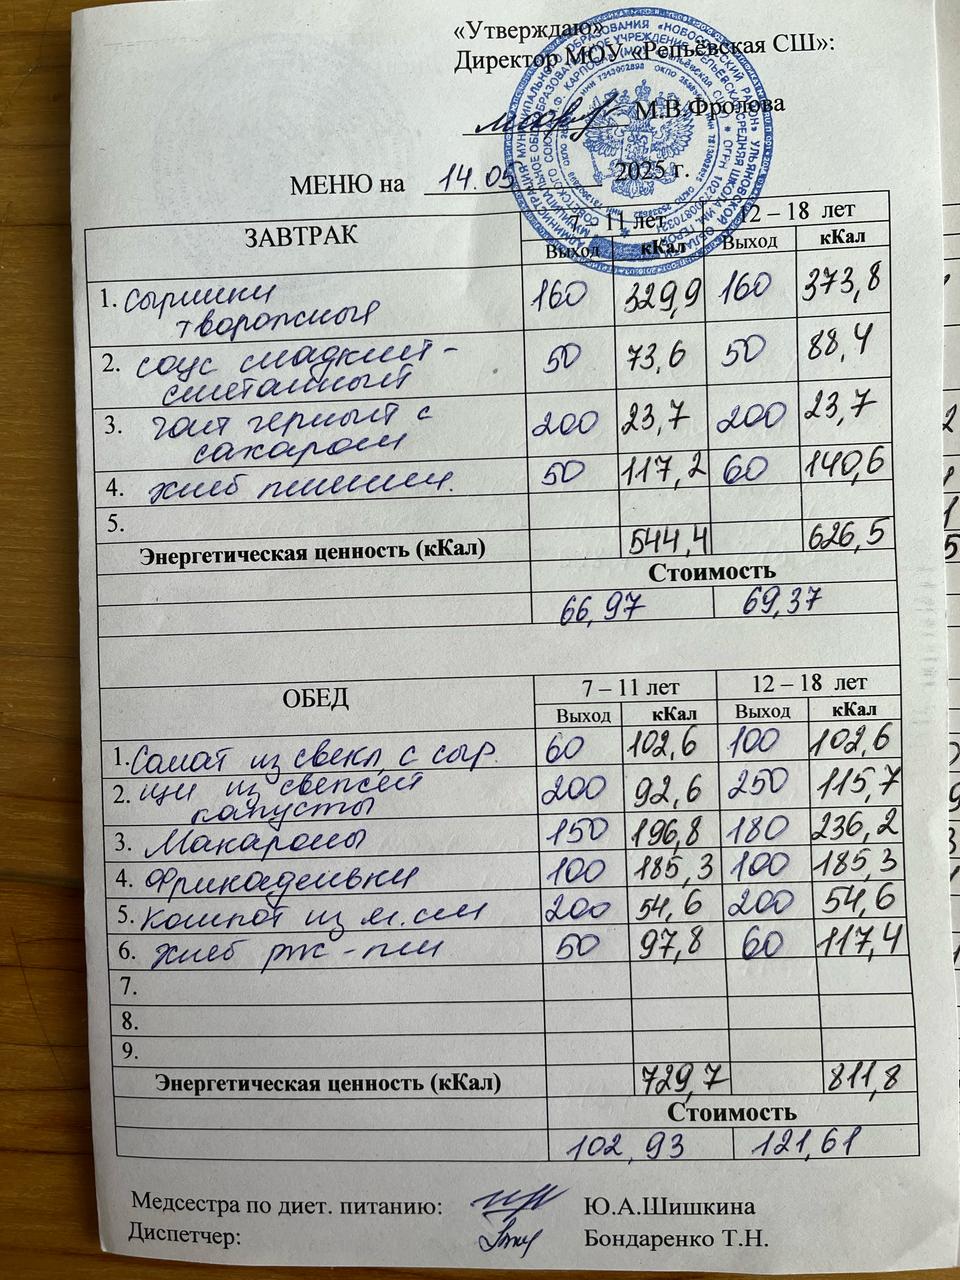 «Утверждаю»
Директор МОУ «Репьёвская СШ»:
М.В.Фролова
МЕНЮ на 14.05 2025 г.
ЗАВТРАК 7 – 11 лет 12 – 18 лет
Выход кКал Выход кКал
1. Сырники творожные 160 329,9 160 373,8
2. соус сладкий - сметанный 50 73,6 50 88,4
3. чай черный с сахаром 200 23,7 200 23,7
4. хлеб пшенич. 50 117,2 60 140,6
5.
Энергетическая ценность (кКал) 544,4 626,5
Стоимость
66,97 69,37
ОБЕД 7 – 11 лет 12 – 18 лет
Выход кКал Выход кКал
1. Салат из свекл с сыр. 60 102,6 100 102,6
2. щи из свежей капусты 200 92,6 250 115,7
3. Макароны 150 196,8 180 236,2
4. Фрикадельки 100 185,3 100 185,3
5. Компот из 200 54,6 200 54,6
6. хлеб рж - пш 50 97,8 60 117,4
7.
8.
9.
Энергетическая ценность (кКал) 729,7 811,8
Стоимость
102,93 121,61
Медсестра по диет. питанию: Ю.А.Шишкина
Диспетчер: Бондаренко Т.Н.